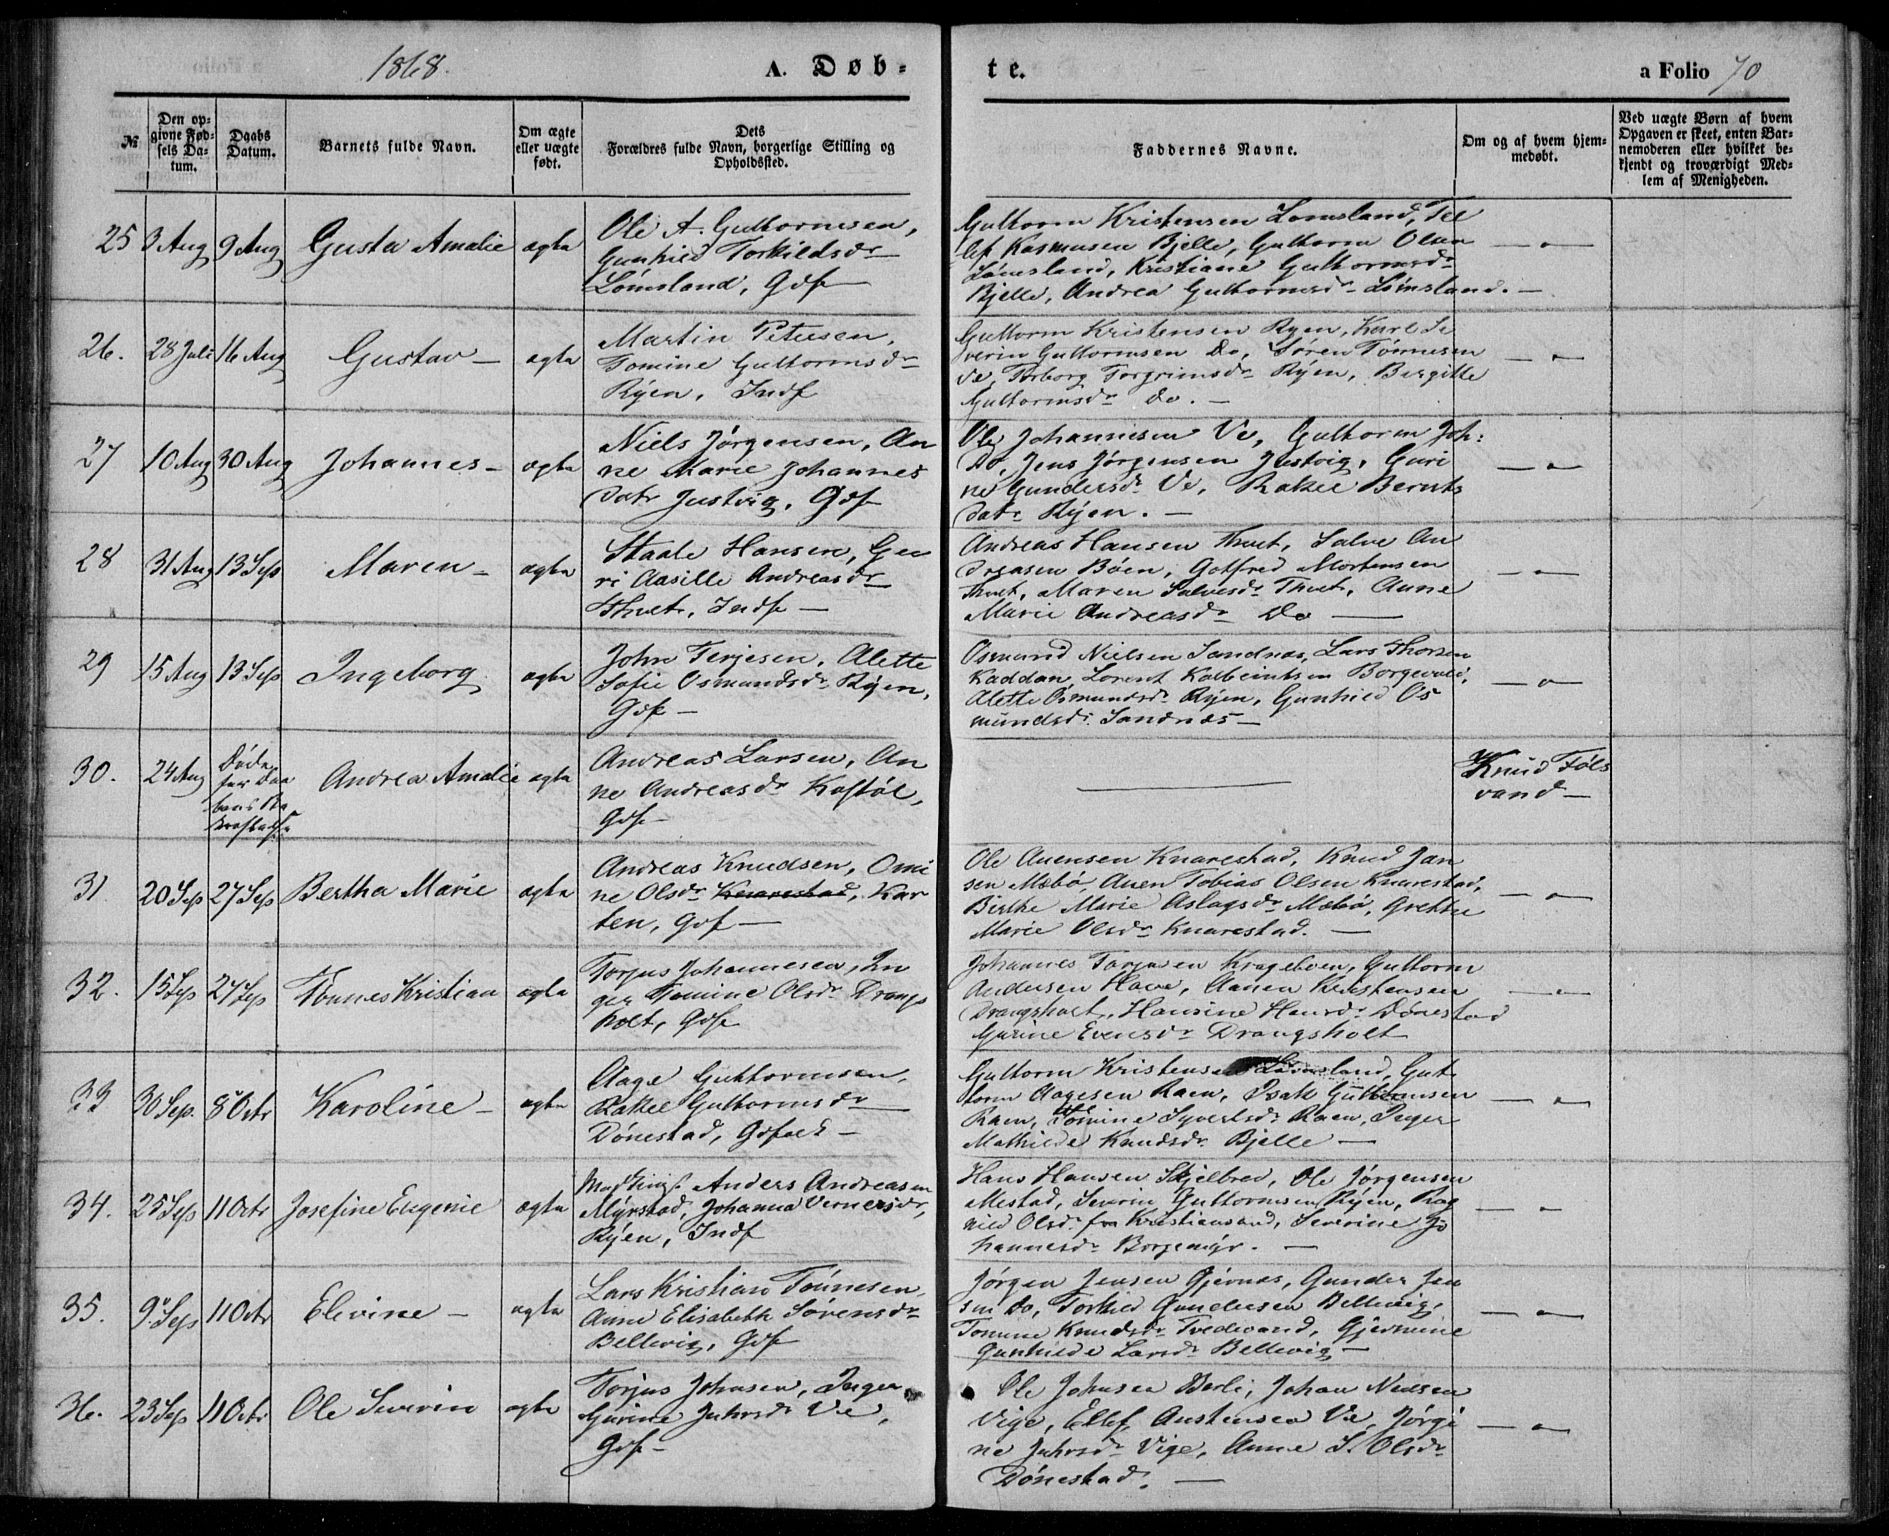 1868.
A. Døb-
te.
a Folio 70
№
Den op-
givne Fød-
sels Da-
tum.
Daabs
Datum.
Barnets fulde Navn.
Om ægte
eller uægte
født.
Dets
Forældres fulde Navn, borgerlige Stilling og
Opholdssted.
Faddernes Navne.
Om og af hvem hjem-
medøbt.
Ved uægte Børn af hvem
Opgaven er skeet, enten Bar-
nemoderen eller hvilket be-
kjendt og troværdigt Med-
lem af Menigheden.
25 3 Aug 9 Aug Gusta Amalie ægte
Ole A. Guttormsen,
Gunhild Torkildsdr
Lømsland, Gdf
Guttorm Kristensen Lomsland, Tel
lef Rasmusen Bjelle, Guttorm Olsen
Lömsland, Kristiane Guttormsdr
Bjelle, Andrea Guttormsdr Lömsland. —
26. 28 Juli 16 Aug Gustav — ægte
Martin Petersen,
Tomine Guttormsdr
Ryen, Indf
Guttorm Kristensen Ryen, Karl Se
verin Guttormsen Do, Søren Tønnesen
do, Torborg Torgrimsdr Ryen, Birgitte
Guttormsdr Do. —
27 10 Aug 30 Aug Johannes — ægte
Niels Jørgensen, An
ne Marie Johannes
datr Justvig, Gdf
Ole Johannesen Ve, Guttorm Joh:
Do, Jens Jørgensen Justvig, Guri
ne Gundersdr Ve, Rakel Bernts
datr Ryen. —
28 31 Aug 13 Sep Maren — ægte
Staale Hansen, Gu
ri Aasille Andreasdr
Thvet, Indf —
Andreas Hansen Thvet, Salve An
dreasen Bøen, Gotfred Mortensen
Thvet, Maren Salvesdr Thvet, Anne
Marie Andreasdr Do —
29 15 Aug 13 Sep Ingeborg ægte
John Terjesen, Alette
Sofie Osmundsdr Ryen,
Gdf —
Osmund Nielsen Sandnes, Lars Thorsen
Kaddan, Lorent Kolbeintsen Borgevold,
Alette Osmundsdr Ryen, Gunhild Os
mundsdr Sandnes —
30. 24 Aug Døde
før Daa
bens
Andrea Amalie ægte
Andreas Larsen, An
ne Andreasdr Kostøl,
Gdf —
Knud Føls
vand —
31 20 Sep 27 Sep Bertha Marie ægte
Andreas Knudsen, Omi
ne Olsdr Knarestad, Kar
ten, Gdf —
Ole Auensen Knarestad, Knud Jan
sen Mæbø, Auen Tobias Olsen Knarestad,
Birthe Marie Aslagsdr Mæbø, Grethe
Marie Olsdr Knarestad. —
32. 15 Sep 27 Sep Tønnes Kristian ægte
Torjus Johannesen, In
ger Tomine Olsdr Drangs
holt, Gdf
Johannes Torjusen Krageboen, Guttorm
Andersen Have, Aanen Kristensen
Drangsholt, Hansine Hansdr Dønestad
Gurine Evensdr Drangsholt
33 30 Sep. 8 Octr Karoline — ægte
Aage Guttormsen,
Rakel Guttormsdr
Dönestad, Gdfolk —
Guttorm Kristensen Lomsland, Gut
torm Aagesen Raen, Isak Guttormsen
Raen, Tomine Syvertsdr Raen, Inger
Mathilde Knudsdr Bjelle —
34. 25 Sep 11 Octr Josefine Eugenie ægte
Anders Andreasen
Myrstad, Johanna Vernersdr,
Ryen, Indf
Hans Hansen Skjelbred, Ole Jørgensen
Mestad, Severin Guttormsen Ryen, Rag
nild Olsdr fra Kristiansand, Severine Jo
hannesdr Borgemyr. —
35. 9 Sep 11 Octr Elevine — ægte
Lars Kristian Tönnesen,
Anne Elisabeth Sørensdr
Bellevig, Gdf
Jørgen Jensen Gjernes, Gunder Jen
sen Do, Torkild Gundersen Bellevig,
Tomine Knudsdr Tvedevand, Gjermine
Gunhilde Larsdr Bellevig —
36. 23 Sep 11 Octr Ole Severin ægte
Torjus Johnsen, Inger
Gurine Juhrsdr Ve,
Gdf —
Ole Johnsen Berli, Johan Nielsen
Vige, Ellef Austensen Ve, Jørgi
ne Juhrsdr Vige, Anne S. Olsdr
Dönestad. —